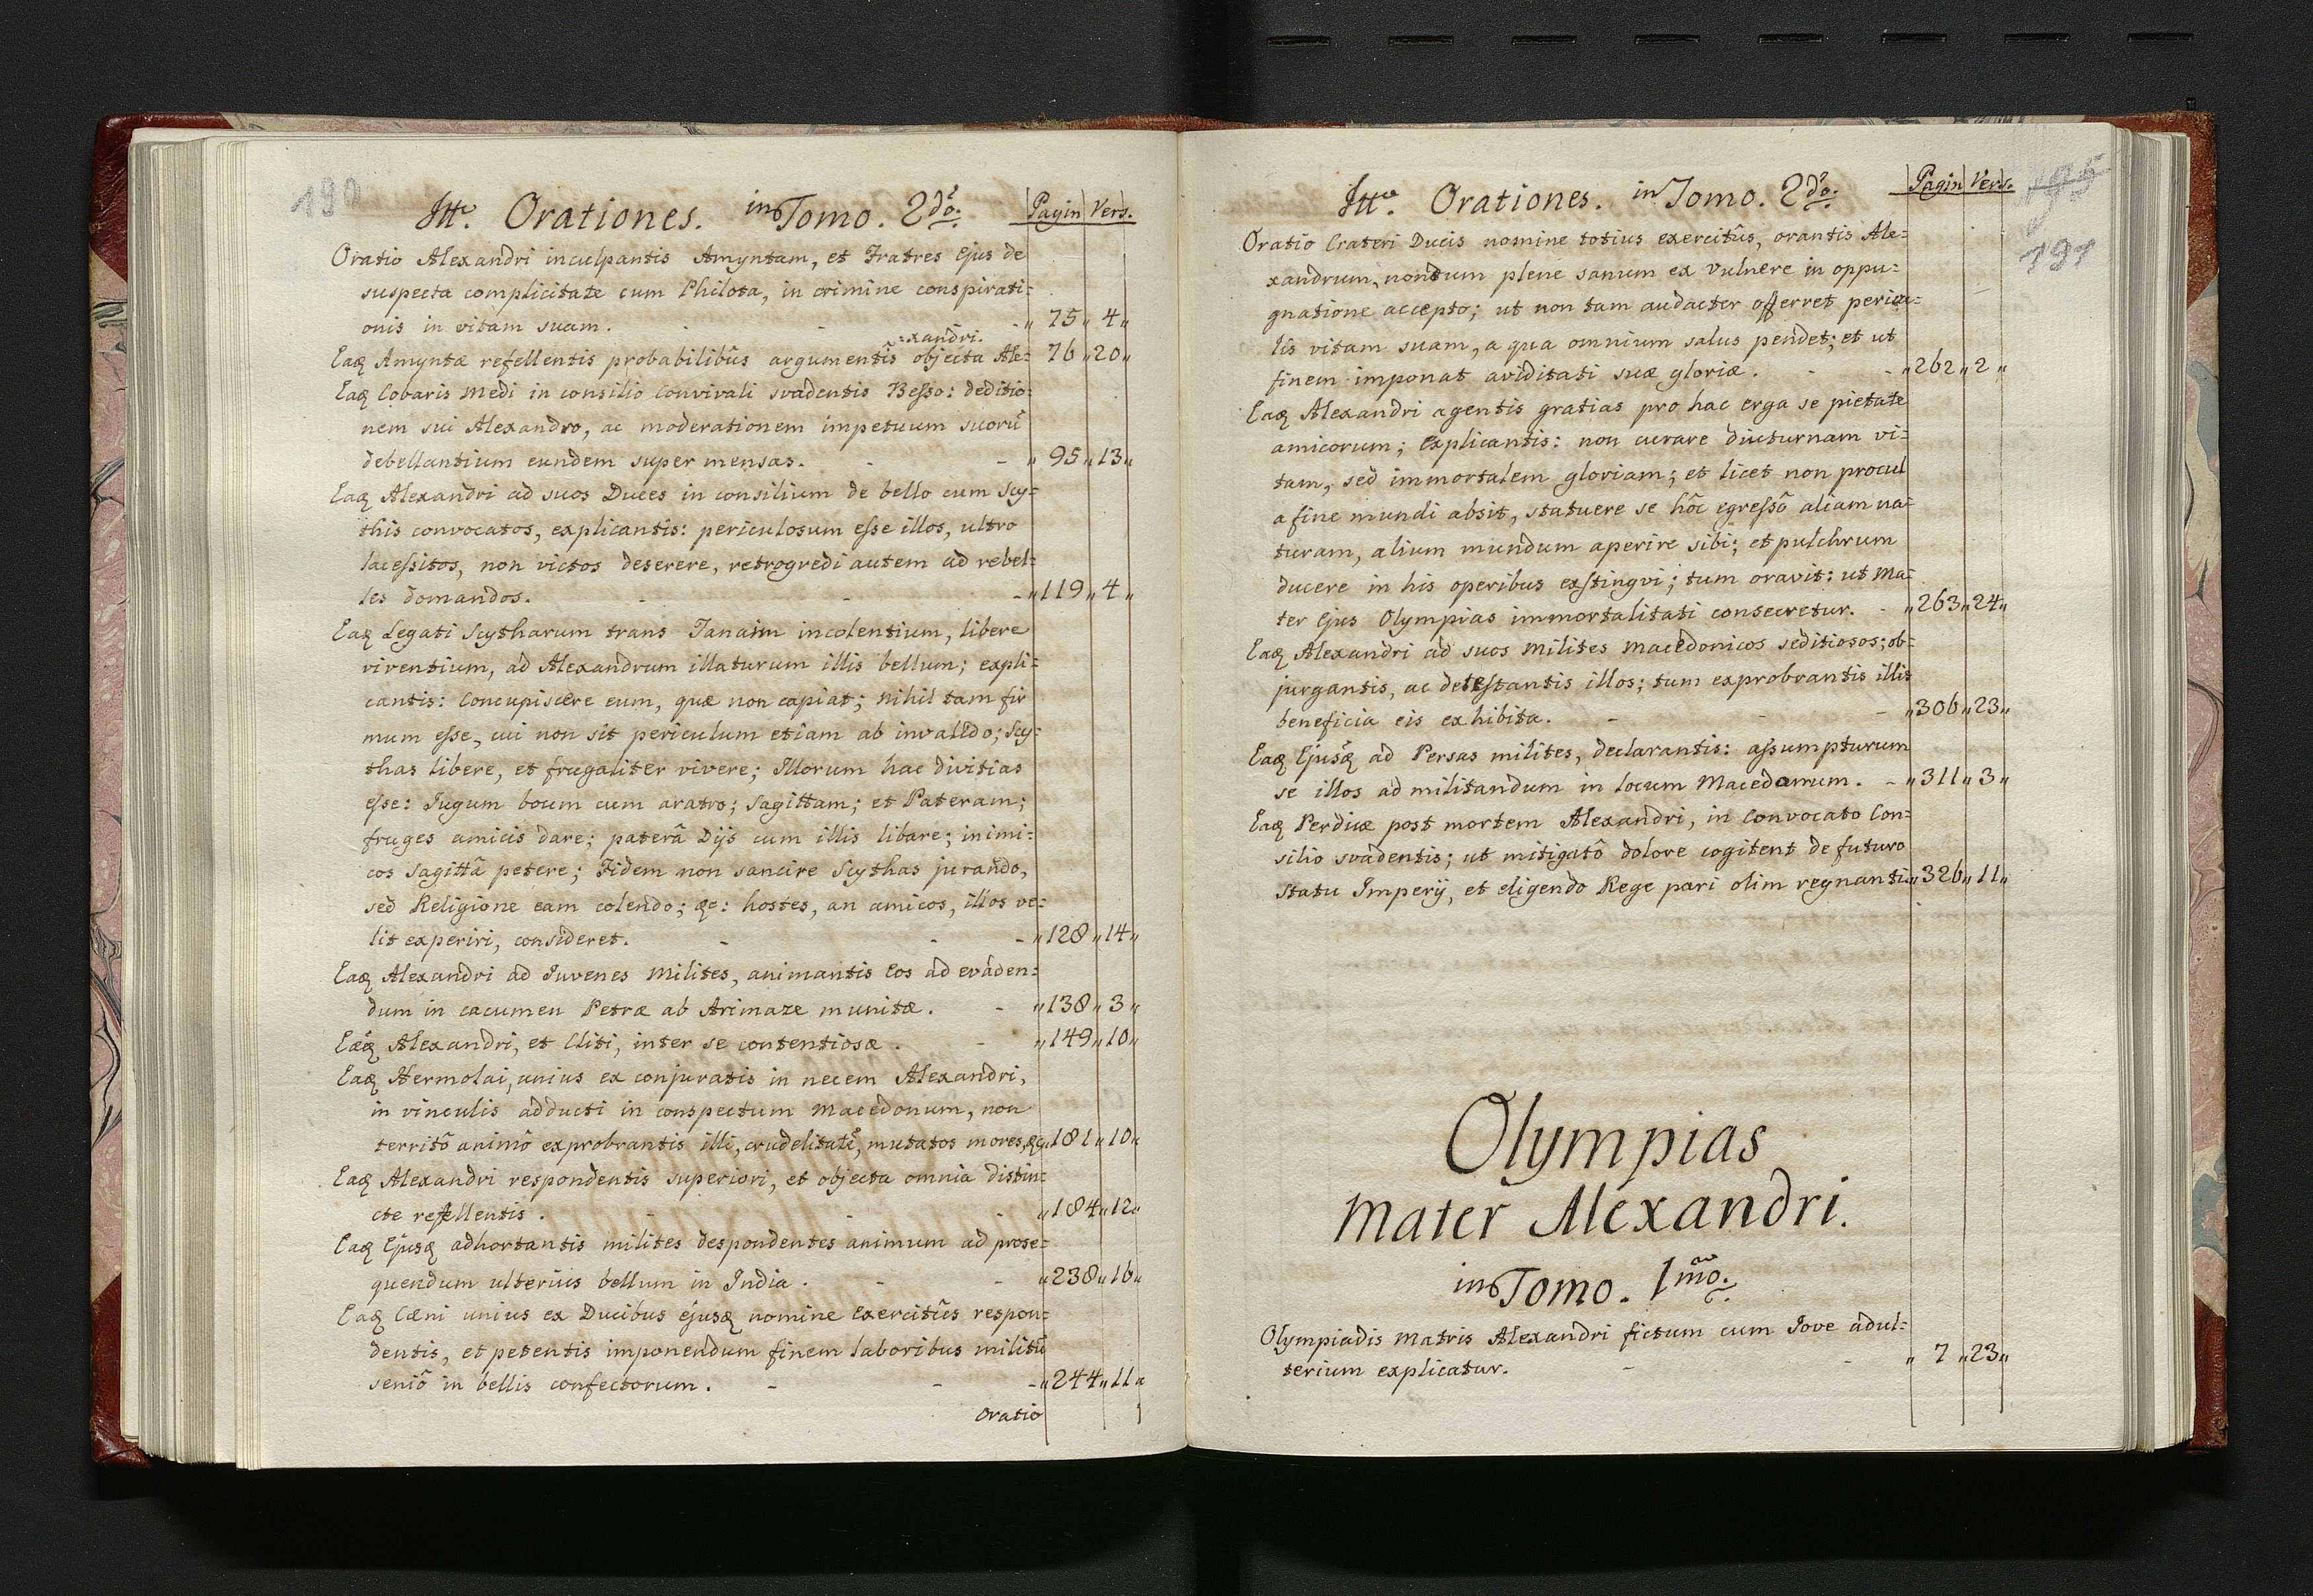 190
Itte. Orationes. in Tomo. 2do. Pagin Vers.
Oratio Alexandri inculpantis Amyntam, et Fratres Ejus de
suspecta complicitate cum Philota, in crimine conspirati=
onis in vitam suam. - - - „ 75 „ 4 „
=xandri.
Eaq Amyntæ refellentis probabilibûs argumentîs objecta Ale= 76 „ 20 „
Eaq Cobaris Medi in consilio Convivali svadentis Besso: deditio=
nem sui Alexandro, ac moderationem impetuum suorũ
debellantium eundem super mensas. - - „ 95 „ 13 „
Eaq Alexandri ad suos Duces in consilium de bello cum Scy=
this convocatos, explicantis: periculosum esse illos, ultro
lacessitos, non victos deserere, retrogredi autem ad rebel=
les domandos. - - - „ 119 „ 4 „
Eaq Legati Scytharum trans Tanaim incolentium, libere
viventium, ad Alexandrum illaturum illis bellum; expli=
cantis: Concupiscere eum, quæ non capiat; Nihil tam fir
mum esse, cui non sit periculum etiam ab invalido; Scy=
thas libere, et frugaliter vivere; Illorum hac divitias
esse: Iugum boum cum aratro; Sagittam; et Pateram;
fruges amicis dare; paterâ Dijs cum illis libare; inimi=
cos Sagittâ petere; Fidem non sancire Scythas jurando,
sed Religione eam colendo; &c: hostes, an amicos, illos ve=
lit experiri, consideret. - - - „ 128 „ 14 „
Eaq Alexandri ad Iuvenes Milites, animantis Eos ad evaden=
dum in cacumen Petræ ab Arimaze munitæ. - „ 138 „ 3 „
Eæq Alexandri, et Cliti, inter se contentiosæ. - „ 149 „ 10 „
Eaq Hermolai, unius ex conjuratis in necem Alexandri,
in vinculis adducti in conspectum Macedonum, non
territô animô exprobrantis illi, crudelitatẽ, mutatos mores, &c. 181 „ 10 „
Eaq Alexandri respondentis superiori, et objecta omnia distin=
cte refellentis. - - - „ 184 „ 12 „
Eaq Ejusq adhortantis milites despondentes animum ad prose=
quendum ulterius bellum in India. - - „ 238 „ 16 „
Eaq Cæni unius ex Ducibus ejusq nomine Exercitûs respon=
dentis, et petentis imponendum finem laboribus militũ
seniô in bellis confectorum. - - - „ 244 „ 11 „
Oratio
195
191
Itte. Orationes. in Tomo. 2do. Pagin Vers.
Oratio Crateri Ducis nomine totius exercitûs, orantis Ale=
xandrum, nondum plene sanum ex Vulnere in oppu=
gnatione accepto; ut non tam audacter offerret pericu=
lis vitam suam, a qua omnium salus pendet; et ut
finem imponat aviditati suæ gloriæ. - - „ 262 „ 2 „
Eaq Alexandri agentis gratias pro hac erga se pietate
amicorum; Explicantis: non curare diuturnam vi=
tam, sed immortalem gloriam; et licet non procul
a fine mundi absit, statuere se hôc egressô aliam na=
turam, alium mundum aperire sibi; et pulchrum
ducere in his operibus exstingvi; tum oravit: ut Ma=
ter Ejus Olympias immortalitati consecretur. - „ 263 „ 24 „
Eaq Alexandri ad suos Milites Macedonicos seditiosos; ob=
jurgantis, ac detestantis illos; tum exprobrantis illis
beneficia eis exhibita. - - - „ 306 „ 23 „
Eaq Ejusq ad Persas milites, declarantis: assumpturum
se illos ad militandum in locum Macedonum. - „ 311 „ 3 „
Eaq Perdicæ post mortem Alexandri, in Convocato Con=
silio svadentis; ut mitigatô dolore cogitent de futuro
statu Imperij, et eligendo Rege pari olim regnanti. „ 326 „ 11 „
Olympias
Mater Alexandri.
in Tomo. 1mo.
Olympiadis Matris Alexandri fictum cum Jove adul=
terium explicatur. - - „ 7 „ 23 „